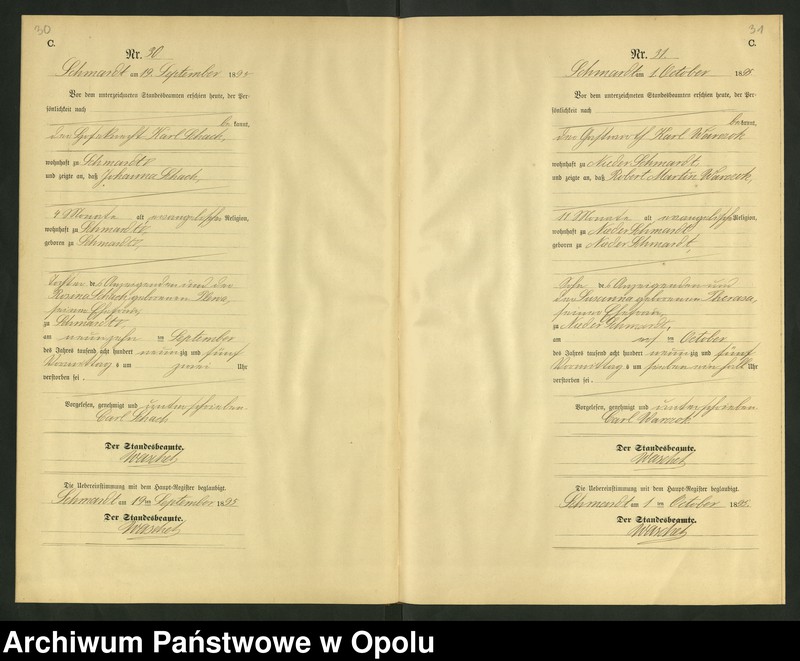 30
C.
Nr. 30
Schmardt am 19. September 1895
Vor dem unterzeichneten Standesbeamten erschien heute, der Per-
sönlichkeit nach
bekannt,
der Hofeknecht Karl Schach,
wohnhaft zu Schmardt,
und zeigte an, daß Johanna Schach,
4 Monate alt evangelischer Religion,
wohnhaft zu Schmardt,
geboren zu Schmardt,
Tochter des Anzeigenden und der
Rosina Schach geborenen
seiner Ehefrau,
zu Schmardt,
am neunzehn ten September
des Jahres tausend acht hundert neunzig und fünf
Vormittags um zwei Uhr
verstorben sei.
Vorgelesen, genehmigt und unterschrieben.
Carl Schach
Der Standesbeamte.
Warzhel
Die Uebereinstimmung mit dem Haupt-Register beglaubigt.
Schmardt am 19 ten September 1895
Der Standesbeamte.
Warzhel
31
C.
Nr. 31.
Schmardt am 1. October 1895.
Vor dem unterzeichneten Standesbeamten erschien heute, der Per-
sönlichkeit nach
bekannt,
der Gastwirth Karl Warzok
wohnhaft zu Nieder Schmardt,
und zeigte an, daß Robert Martin Warzok,
11 Monate alt evangelischer Religion,
wohnhaft zu Nieder Schmardt
geboren zu Nieder Schmardt,
Sohn des Anzeigenden und
der Susanna geborenen
seiner Ehefrau,
zu Nieder Schmardt,
am ten October
des Jahres tausend acht hundert neunzig und fünf
Vormittags um sieben ein halb Uhr
verstorben sei.
Vorgelesen, genehmigt und unterschrieben.
Carl Warzok
Der Standesbeamte.
Warzhel
Die Uebereinstimmung mit dem Haupt-Register beglaubigt.
Schmardt am 1 ten October 1895.
Der Standesbeamte.
Warzhel
Archiwum Państwowe w Opolu